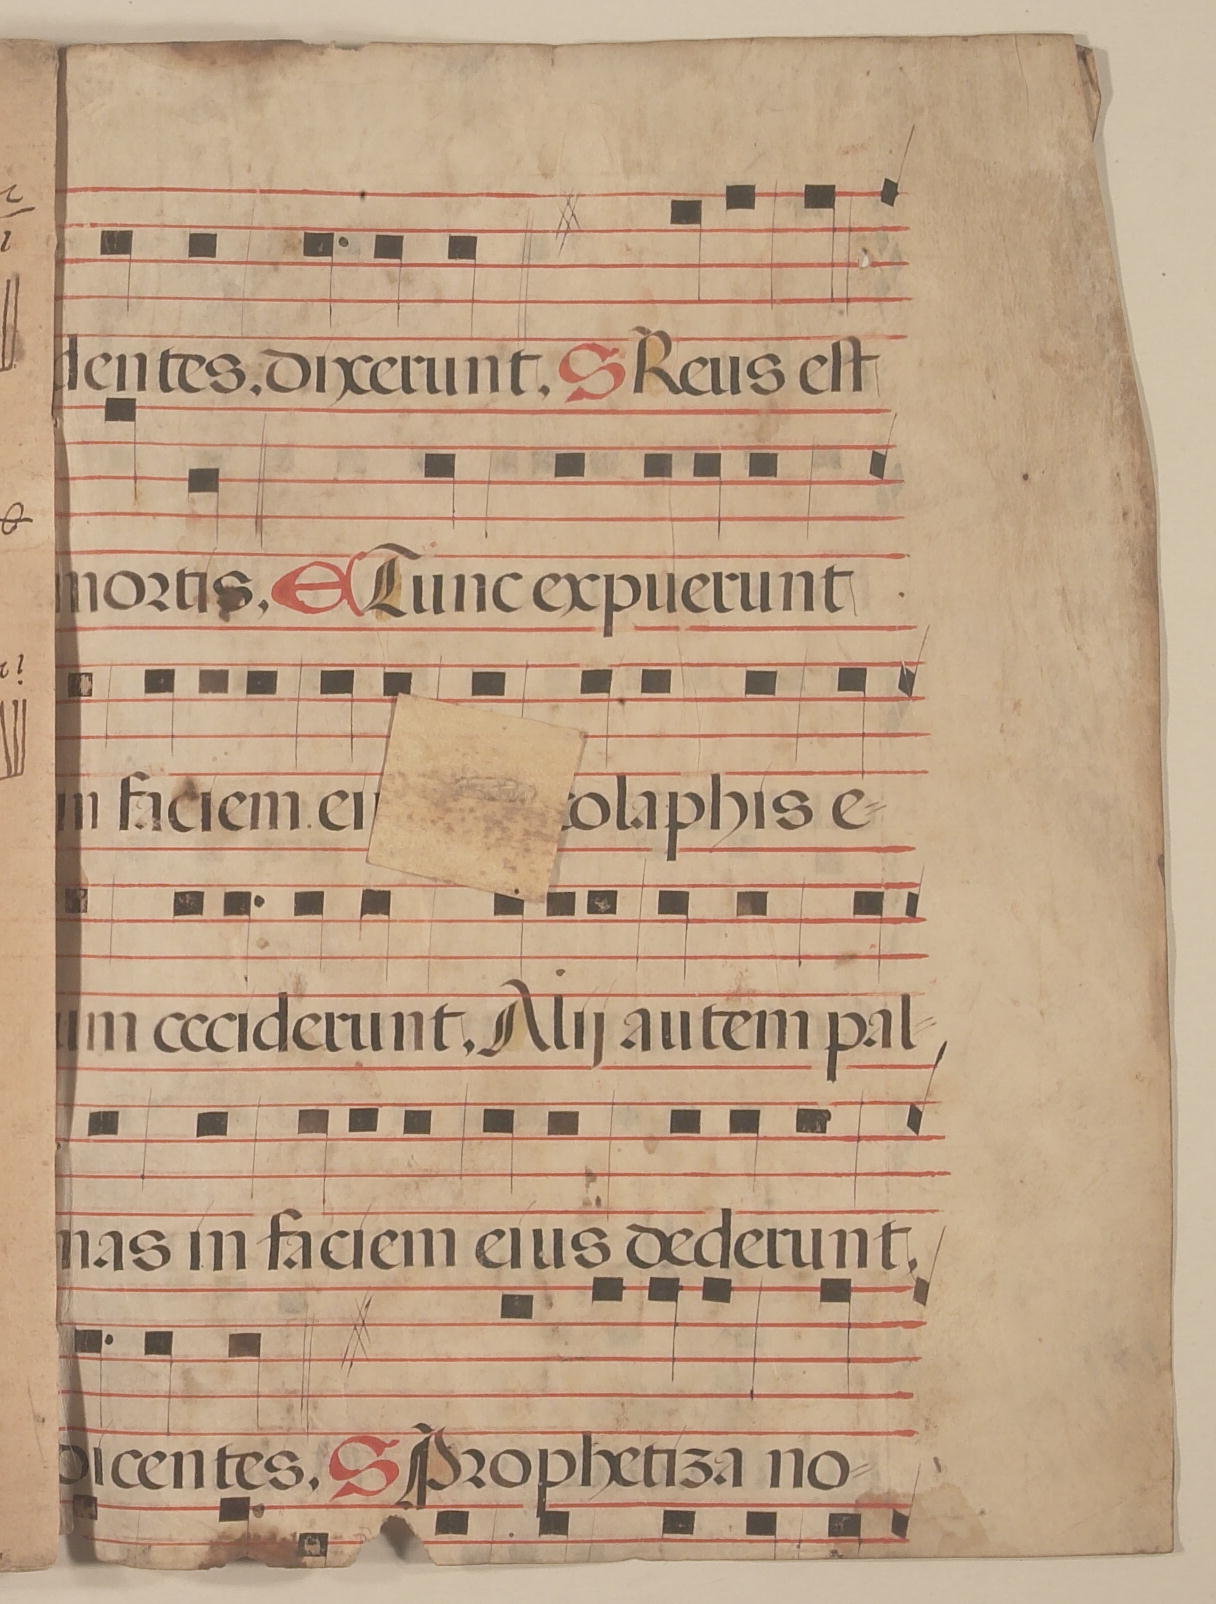 dentes, dixerunt, S Reus est
mortis, C Tunc expuerunt
in faciem colaphis e-
um cęciderunt, Alij autem pal-
mas in faciem eius dederunt,
dicentes, S Prophetiza no-